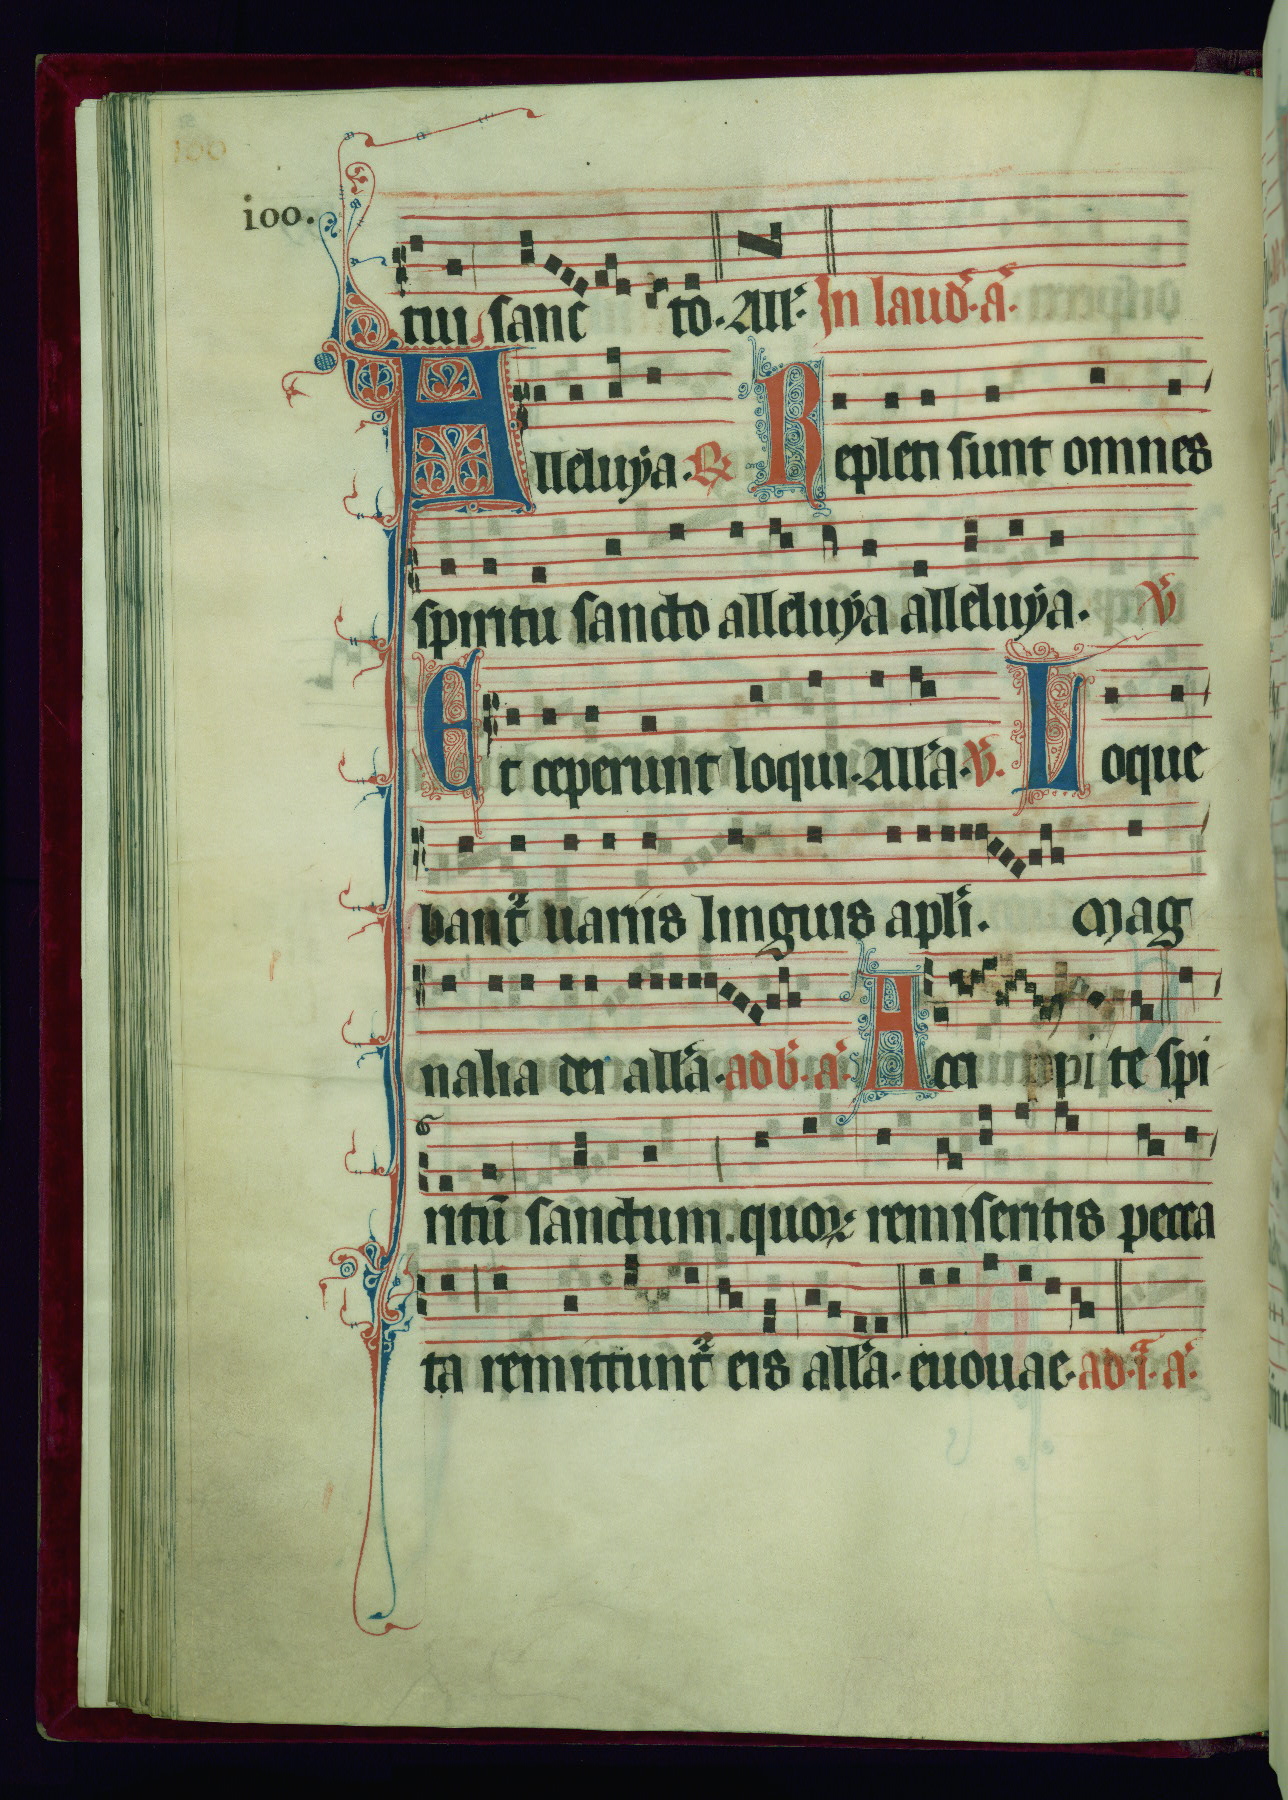 100
ioo.
tui sanc to. All'. In laud'. a'.
Alleluya. R' Repleti sunt omnes
spiritu sancto alleluya alleluya. V'
Et ceperunt loqui. All'a. V'. Loque
bant' uariis linguis apl'i. Mag
nalia dei all'a. ad b'. a'. Acci pi te spi
ritū sanctum. quoꝝ remiseritis pecca
ta remittunt' eis all'a. euouae. ad. i'. a'.